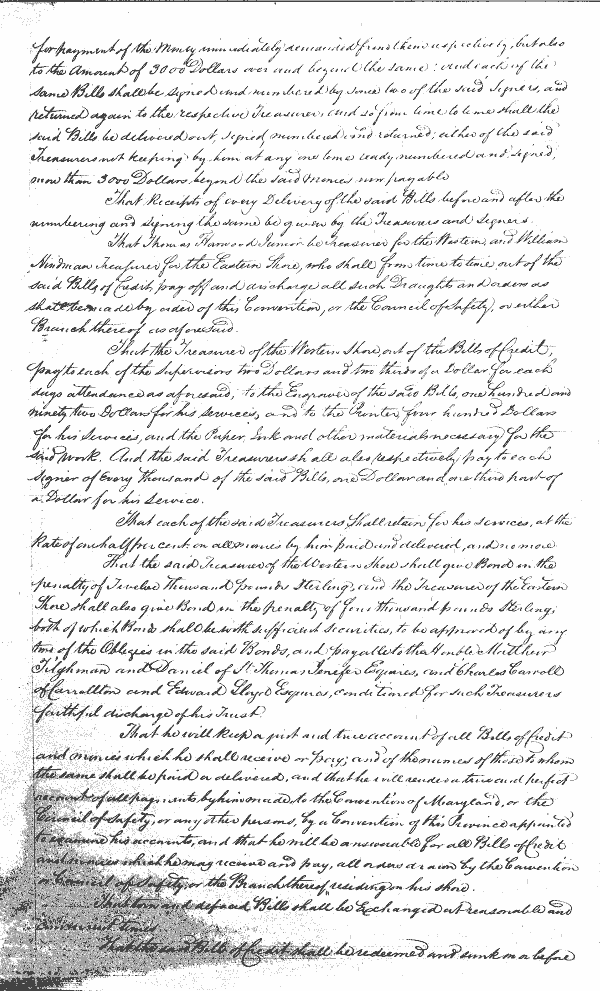 for payment of the Money immediately demanded from them respectively, but also
to the Amount of 3000 Dollars over and beyond the same: and each of the
same Bills shall be signed and numbered by some two of the said Signers, and
returned again to the respective Treasurer, and so from time to time shall the
said Bills be delivered out, signed, numbered and returned; either of the said
Treasurers not keeping by him at any one time ready numbered and signed,
more than 3000 Dollars, beyond the said Monies now payable
That Receipts of every Delivery of the said Bills before and after the
numbering and signing the same be given by the Treasurers and Signers.
That Thomas Harwood Junior be Treasurer for the Western, and William
Hindman Treasurer for the Eastern Shore, who shall from time to time out of the
said Bills of Credit, pay off and discharge all such Draughts and orders as
shall be made by order of this Convention, or the Council of Safety, or either
Branch thereof as aforesaid.
That the Treasurer of the Western Shore, out of the Bills of Credit,
pay to each of the Supervisors two Dollars and two thirds of a Dollar for each
days attendance as aforesaid; to the Engraver of the said Bills, one hundred and
ninety two Dollars for his services, and to the Printer four hundred Dollars
for his Services, and the Paper, Ink and other materials necessary for the
said work. And the said Treasurers shall also respectively pay to each
Signer of every thousand of the said Bills, one Dollar and one third part of
a Dollar for his service.
That each of the said Treasurers shall retain for his services, at the
Rate of one half percent on all monies by him paid and delivered, and no more
That the said Treasurer of the Western Shore shall give Bond in the
penalty of Twelve Thousand pounds Sterling, and the Treasurer of the Eastern
Shore shall also give Bond in the penalty of four thousand pounds Sterling;
both of which Bonds shall be with sufficient securities, to be approved of by any
two of the Obligees in the said Bonds, and payable to the Honble Matthew
Tilghman and Daniel of St Thomas Jenefer Esquires, and Charles Carroll
of Carrollton and Edward Lloyd Esquires, conditioned for such Treasurers
faithful discharge of his Trust.
That he will keep a just and true account of all Bills of Credit
and monies which he shall receive or pay; and of the names of those to whom
the same shall be paid or delivered, and that he will render a true and perfect
account of all payments by him made to the Convention of Maryland, or the
Council of Safety, or any other persons, by a Convention of this Province appointed
to examine his accounts, and that he will be answerable for all Bills of Credit
and monies which he may receive and pay, all orders drawn by the Convention
or Council of Safety, or the Branch thereof residing on his shore.
That torn and defaced Bills shall be Exchanged at reasonable and
convenient times
That the said Bills of Credit shall be redeemed and sunk on or before